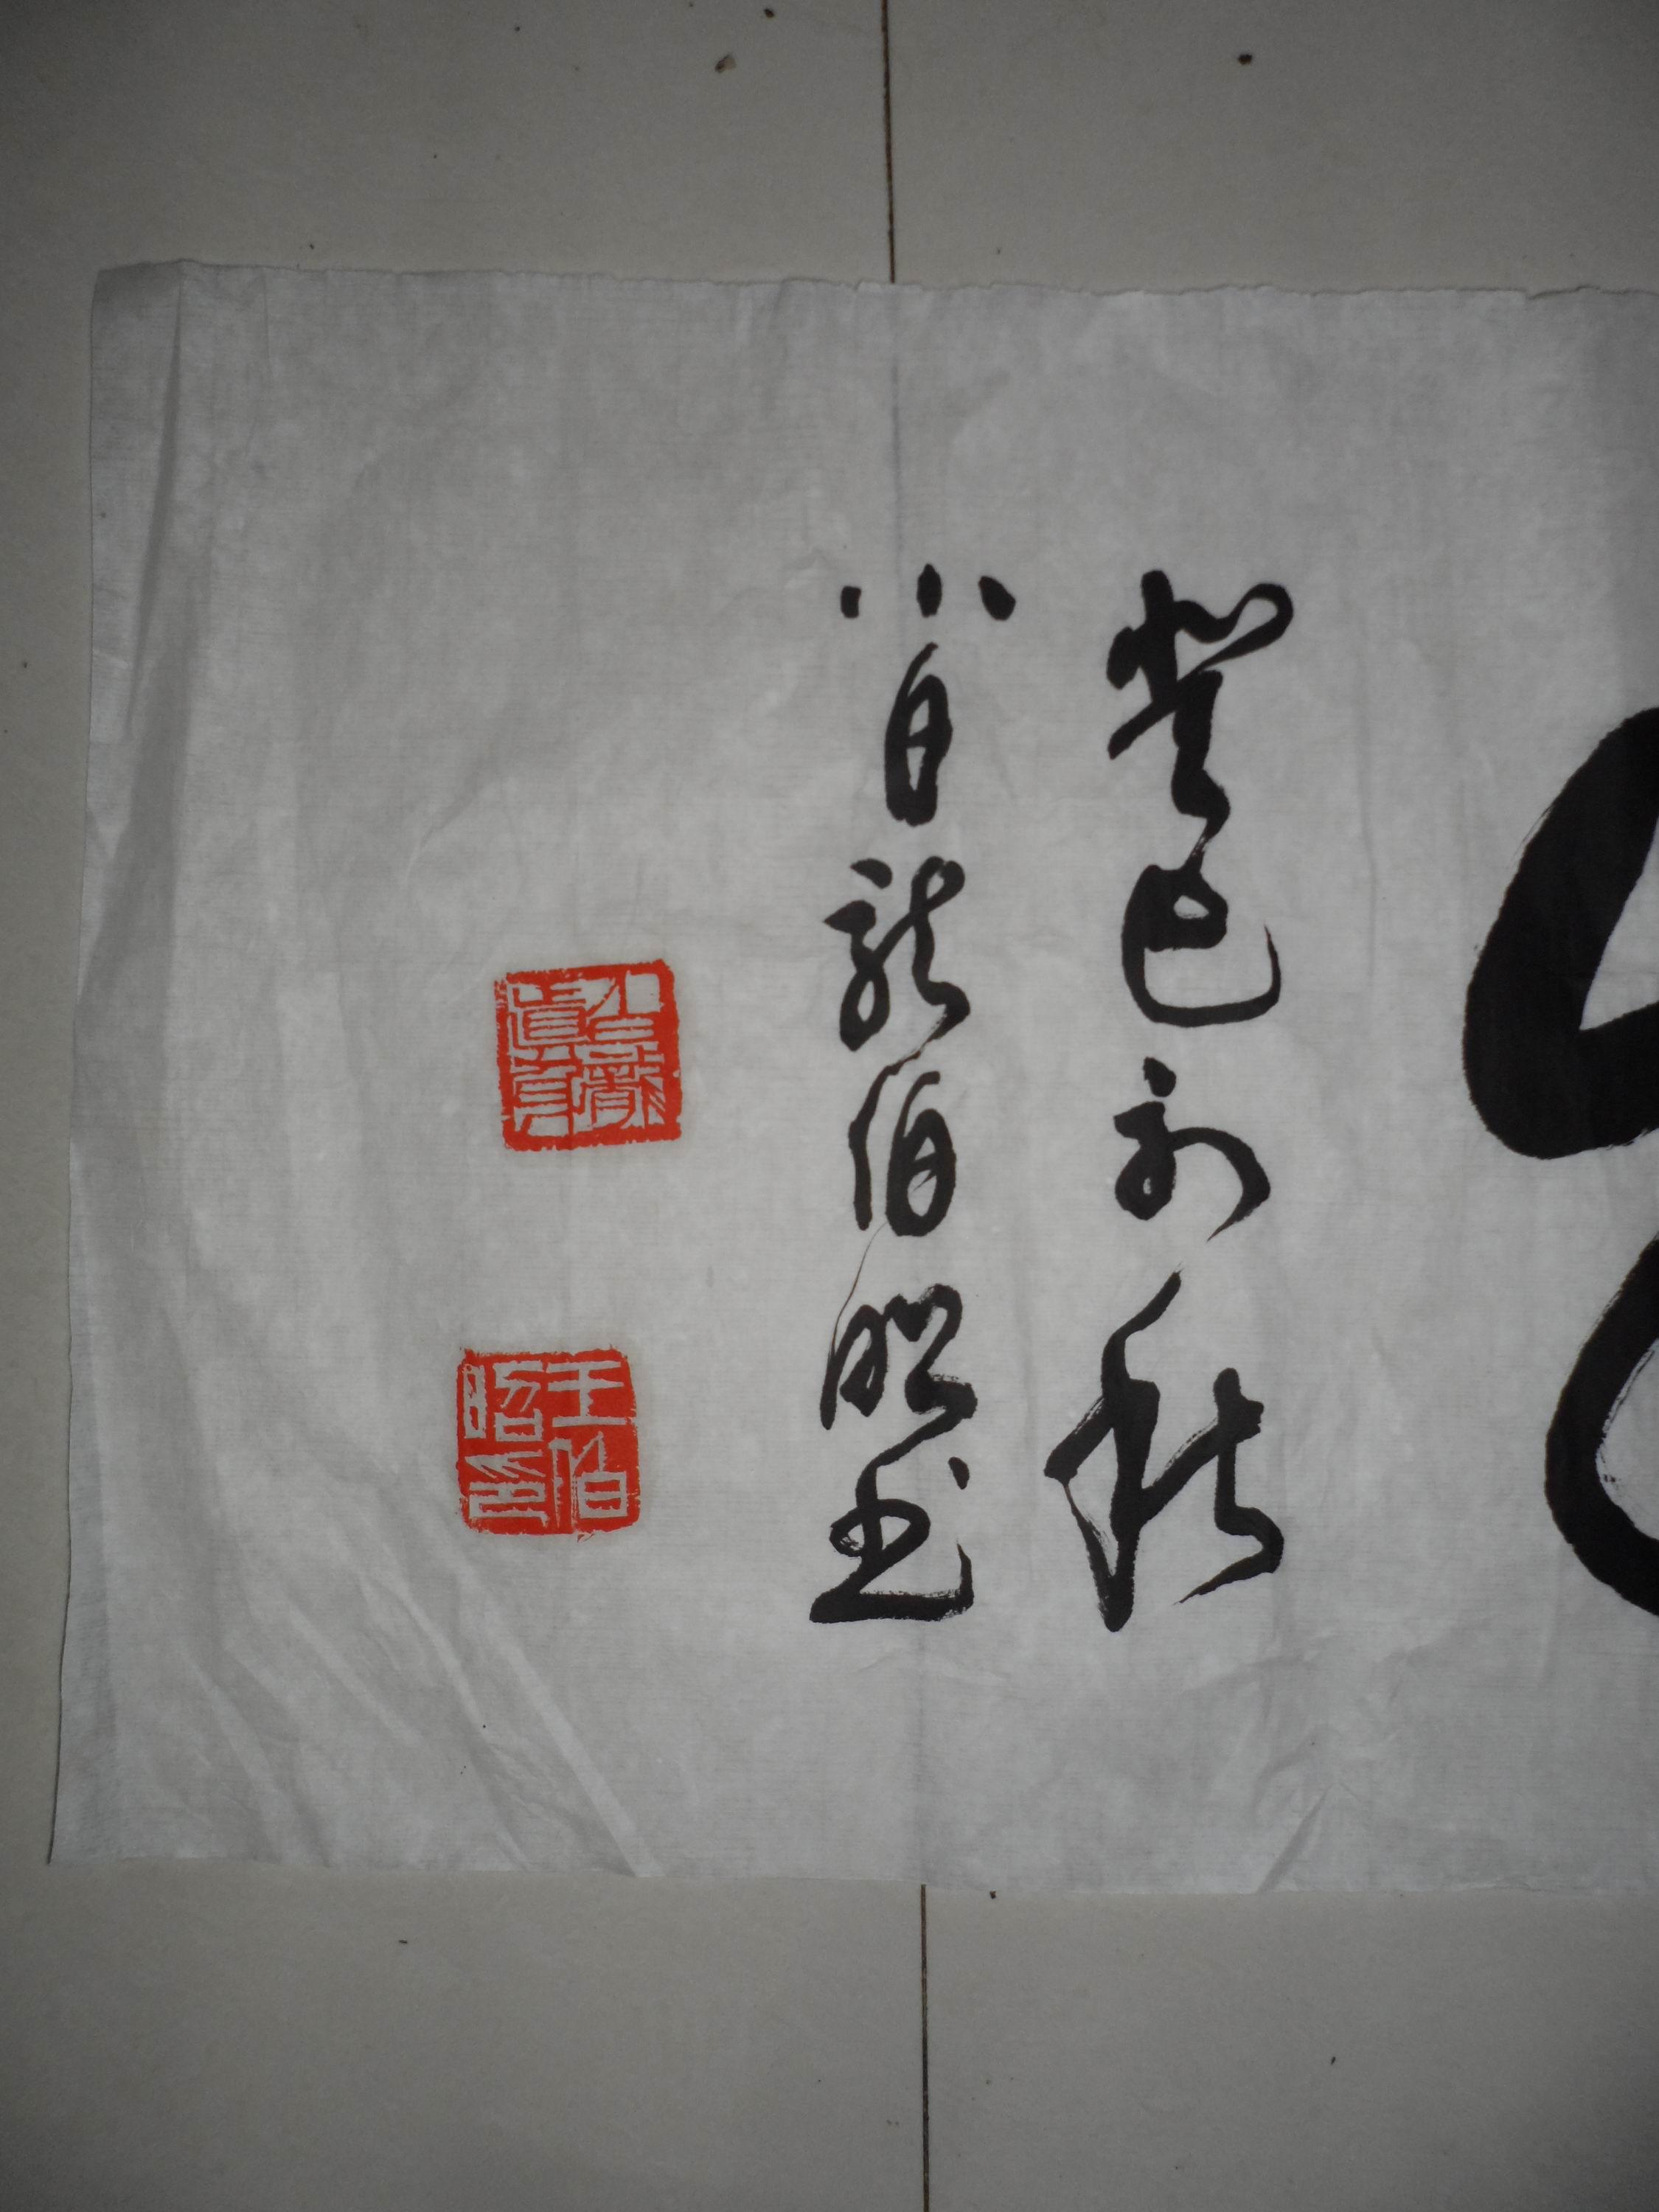 癸巳初秋
小白龍伯昭书
王伯昭印